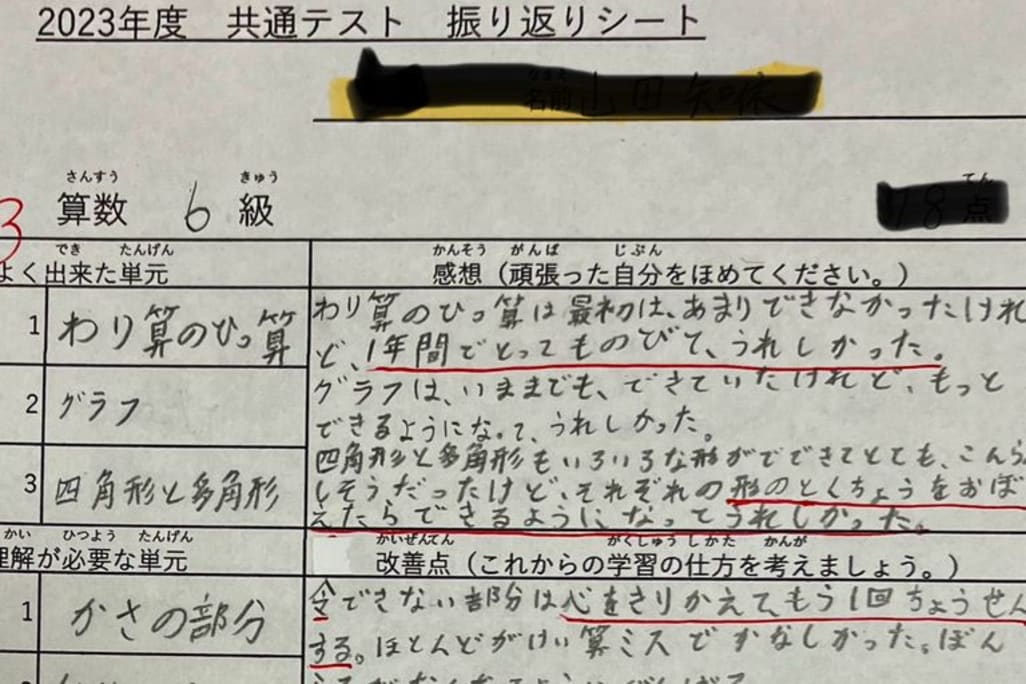 2023年度 共通テスト 振り返りシート
さんすう きゅう てん
算数 6 級
でき たんげん
よく出来た単元
かんそう がんば じぶん
感想（頑張った自分をほめてください。）
1 わり算のひっ算
わり算のひっ算は最初は、あまりできなかったけれ
ど、1年間でとってものびて、うれしかった。
2 グラフ
グラフは、いままでも、できていたけれど、もっと
できるようになって、うれしかった。
3 四角形と多角形
四角形と多角形もいろいろな形がでできてとても、こんら
しそうだったけど、それぞれの形のとくちょうをおぼ
えたらできるようになってうれしかった。
かい ひつよう たんげん
理解が必要な単元
かいぜんてん がくしゅう しかた かんが
改善点（これからの学習の仕方を考えましょう。）
1 かさの部分
今できない部分は心をきりかえて、もう1回ちょうせん
する。ほとんどがけい算ミスでかなしかった。ぼん